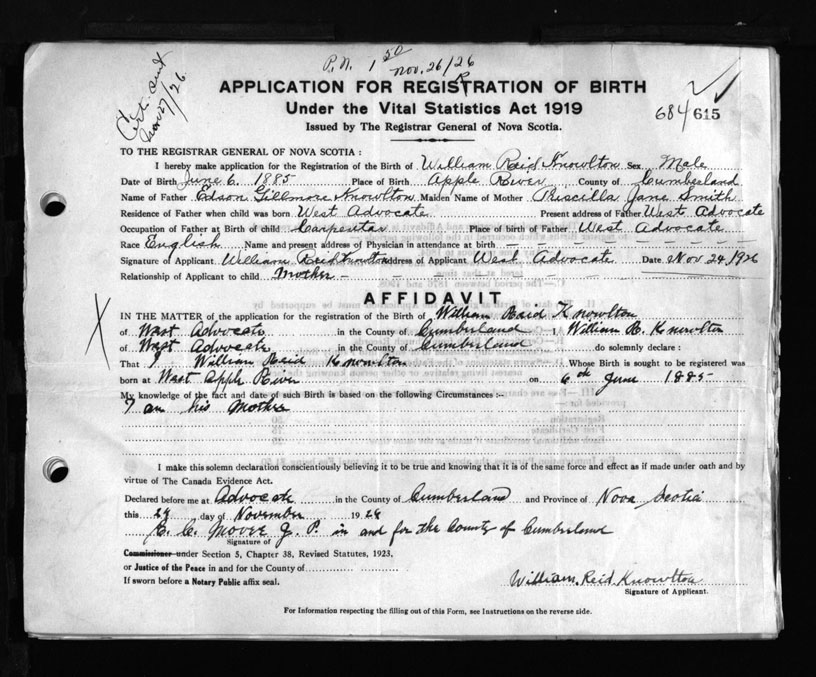 P.N. 1 50 Nov. 26/26
Cert. sent
Nov 27/26
APPLICATION FOR REGISTRATION OF BIRTH
Under the Vital Statistics Act 1919
684 615
Issued by The Registrar General of Nova Scotia.
TO THE REGISTRAR GENERAL OF NOVA SCOTIA :
I hereby make application for the Registration of the Birth of William Reid Knowlton Sex Male
Date of Birth June 6. 1885 Place of Birth Apple River County of Cumberland
Name of Father Edson Gillmore Knowlton Maiden Name of Mother Priscilla Jane Smith
Residence of Father when child was born West Advocate Present address of Father West Advocate
Occupation of Father at Birth of child Carpentar Place of birth of Father West Advocate
Race English Name and present address of Physician in attendance at birth – – – – – – – – – –
Signature of Applicant William Reid Knowlton Address of Applicant West Advocate Date Nov 24, 1926
Relationship of Applicant to child Mother – – – – – – – – – –
AFFIDAVIT
IN THE MATTER of the application for the registration of the Birth of William Raid Knowlton
of West Advocate in the County of Cumberland I, William R. Knowlton
of West Advocate in the County of Cumberland do solemnly declare :
That I William Raid Knowlton Whose Birth is sought to be registered was
born at West Apple River on 6th June 1885
My knowledge of the fact and date of such Birth is based on the following Circumstances :-
I am his Mother
I make this solemn declaration conscientiously believing it to be true and knowing that it is of the same force and effect as if made under oath and by
virtue of The Canada Evidence Act.
Declared before me at Advocate in the County of Cumberland and Province of Nova Scotia
this 24 day of November 1926
Moore J. P. in and for the County of Cumberland
Signature of
Commissioner under Section 5, Chapter 38, Revised Statutes, 1923,
or Justice of the Peace in and for the County of
If sworn before a Notary Public affix seal.
William Reid Knowlton
Signature of Applicant.
For Information respecting the filling out of this Form, see Instructions on the reverse side.